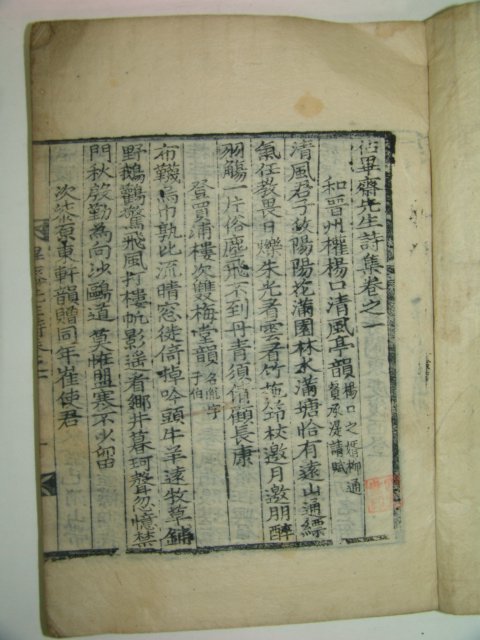 佔畢齋先生詩集卷之一
和晉州權楊口清風亭韻 楊口之婿柳通
負承湜請賦
清風君子敘陽陽 挖滿園林水滿塘恰有遠山通縹
氣任教畏日爍朱光看雲看竹拖筇杖邀月邀朋醉
羽觴一片俗塵飛不到丹青須倩顧長康
登買浦樓次雙梅堂韻
布韈烏巾孰比流晴窓徙倚悼吟頭牛羊遠牧草鋪
野鸛鶴驚飛風打樓帆影遥看鄉井暮珂聲忽憶禁
門秋慇勤為向沙鷗道莫悔盟寒不少留
東軒韻贈同年崔使君